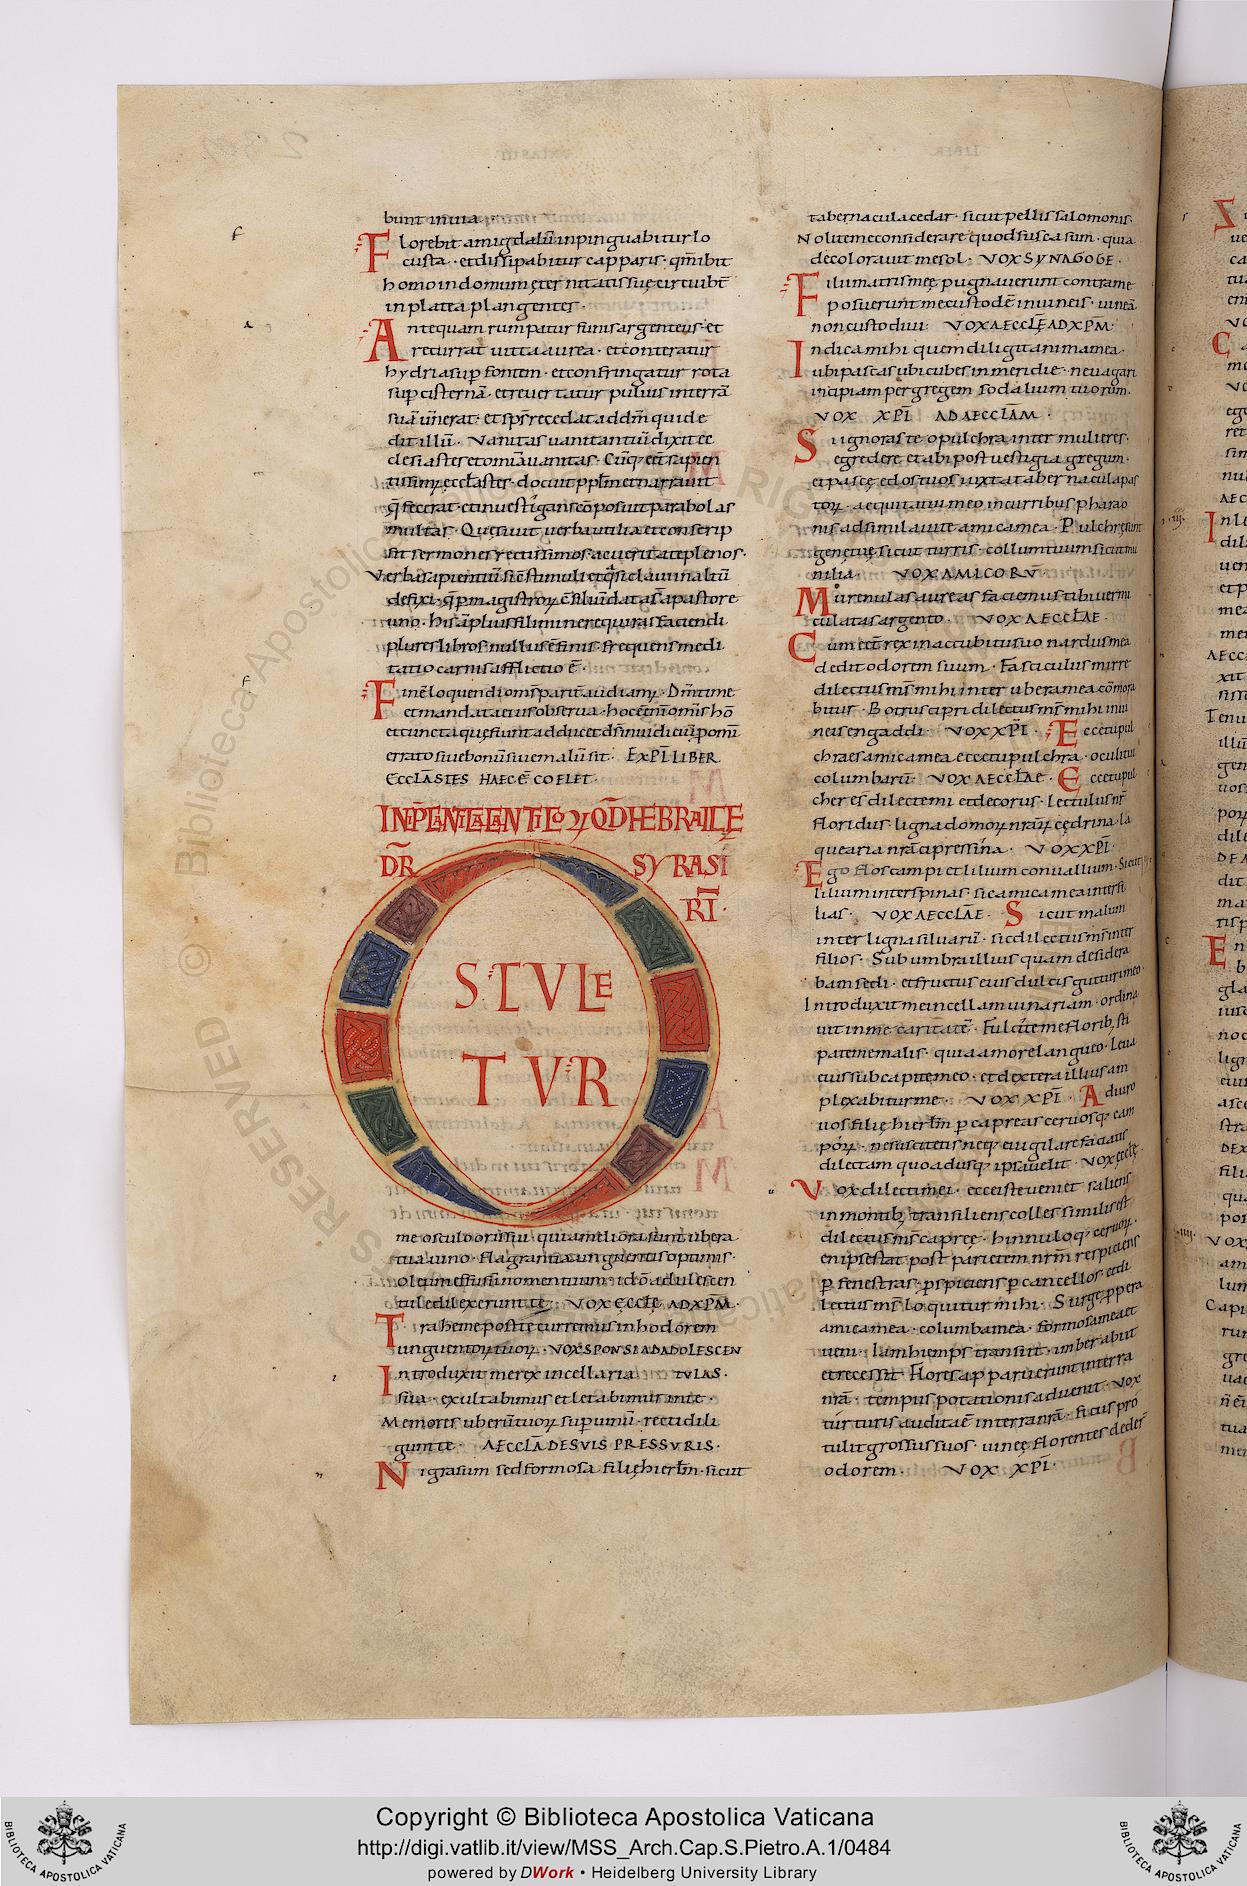 bunt in uia ·
Florebit amigdalũ inpinguabitur lo
custa · et dissipabitur capparis · qm̃ ibit
homo in domum eternitatis suę & circuibt̃
in platea plangentes ·
Antequam rumpatur funis argenteus · et
recurrat uitta aurea · et conteratur
hydria sup fontem · et confringatur rota
sup cisternã · et reuertatur puluis in terrã
suã uñ erat · et sps̃ recedat ad dm̃ qui de
dit illũ · Vanitas uanitantiũ dixit ec
clesiastes et omia uanitas · Cũq; eẽt sapien
tissim; eccl̃astes · docuit ppl̃m et narrauit
q̃ fecerat · et inuestigans cõposuit parabolas
multas · Quęsiuit uerba utilia et conscrip
sit sermones rectissimos · ac ueritate plenos ·
Verba sapientiũ sic̃ stimuli et q̃si claui in altũ
defixi · q̃ p magistroꝝ c̃siliũ data s̃ a pastore
uno · His ãplius fili mi ne requiras faciendi
plures libros nullus ẽ finis · frequens medi
tatio carnis afflictio ẽ ·
Finẽ loquendi oms̃ parit̃ audiam; · Dm̃ time
et mandata eius obserua · hoc ẽ eni omĩs hõ
et cuncta quę fiunt adducet ds̃ in iudiciũ p omĩ
errato siue bonũ siue malũ sit · EXPL̃ LIBER
ECCL̃ASTES HAEC Ẽ COELET ·
DR̃ SYRASI
RI̅ ·
OSCVLE
TVR
me osculo oris sui · quia meliora sunt ubera
tua uino · flagrantia unguentis optimis ·
Oleum effusũ nomen tuum · ido adulescen
tule dilexerunt te · VOX ĘCCLĘ AD XPM̃ ·
Trahe me post te curremus in hodorem
unguentoꝝ tuoꝝ · VOX SPONSI AD ADOLESCEN
Introduxit me rex in cellaria TVLAS ·
sua · exultabimus et letabimur in te ·
Memores uberũ tuoꝝ sup uinũ · recti dili
gunt te · AECCLÃ DE SVIS PRESSVRIS ·
Nigra sum sed formosa filię hierl̃m · sicut
tabernacula cedar · sicut pellis salomonis ·
Nolite me considerare quod fusca sum · quia
decolorauit me sol · VOX SYNAGOGE ·
Filii matris meę pugnauerunt contra me
posuerunt me custodẽ in uineis · uineã
non custodiui · VOX AECCLĘ AD XPM̃ ·
Indica mihi quem diligit anima mea
ubi pascas ubi cubes in meridie · ne uagari
incipiam per gregem sodalium tuorum ·
VOX XPI̅ AD AECCLÃM ·
Si ignoras te o pulchra inter mulieres ·
egredere et abi post uestigia gregum ·
et pasce edos tuos iuxta tabernacula pas
toꝝ · aequitatui meo in curribus pharao
nis adsimilaui te amica mea · Pulchrę sunt
genę tuę sicut turris · collum tuum sicut mu
nilia · VOX AMICORṼ ·
Murenulas aureas faciemus tibi uermi
culatas argento · VOX AECCL̃AE ·
Cum eẽt rex in accubitu suo nardus mea
dedit odorem suum · Fasciculus mirre
dilectus ms̃ mihi inter ubera mea cõmora
bitur · Botrus cipri dilectus ms̃ mihi in ui
neis engaddi · VOX XPI̅ · Ecce tu pul
chra es amica mea ecce tu pulchra · oculi tui
columbarũ · VOX AECCL̃AE · Ecce tu pul
cher es dilecte mi et decorus · Lectulus nr̃
floridus · ligna domoꝝ nrãꝝ cędrina · la
quearia nrã cipressina · VOX XPI̅ ·
Ego flos campi et lilium conuallium · Sicut
lilium inter spinas · sic amica mea inter fi
lias · VOX AECCLÃE · Sicut malum
inter ligna siluarũ · sic dilectus ms̃ inter
filios · Sub umbra illius quam desidera
bam sedi · et fructus eius dulcis gutturi meo ·
Introduxit me in cellam uinariam · ordina
uit in me caritatẽ · Fulcite me florib; sti
pate me malis · quia amore langueo · Leua
eius sub capite meo · et dextera illius am
plexabitur me · VOX XPI̅ · Adiuro
uos filię hierl̃m p capreas ceruosq; cam
poꝝ · ne suscitetis neq; euigilare faciatis
dilectam quoadusq; ipsa uelit · VOX ĘCCLĘ ·
Vox dilecti mei · ecce iste uenit saliens
in montib; transiliens colles similis est
dilectus ms̃ capreę · hinnuloq; ceruoꝝ ·
en ipse stat post parietem nrm̃ respiciens
p fenestras · pspiciens p cancellos · et di
lectus ms̃ loquitur mihi · Surge ppera
amica mea · columba mea · formosa mea et
ueni · Iam hiemps transiit · imber abiit
et recessit · Flores apparuerunt in terra
nrã · tempus potationis aduenit · Vox
turturis audita ẽ in terra nrã · ficus pro
tulit grossus suos · uineę florentes deder̃
odorem · VOX XPI̅ ·
Copyright © Biblioteca Apostolica Vaticana
http://digi.vatlib.it/view/MSS_Arch.Cap.S.Pietro.A.1/0484
powered by DWork • Heidelberg University Library
BIBLIOTECA APOSTOLICA VATICANA
BIBLIOTECA APOSTOLICA VATICANA